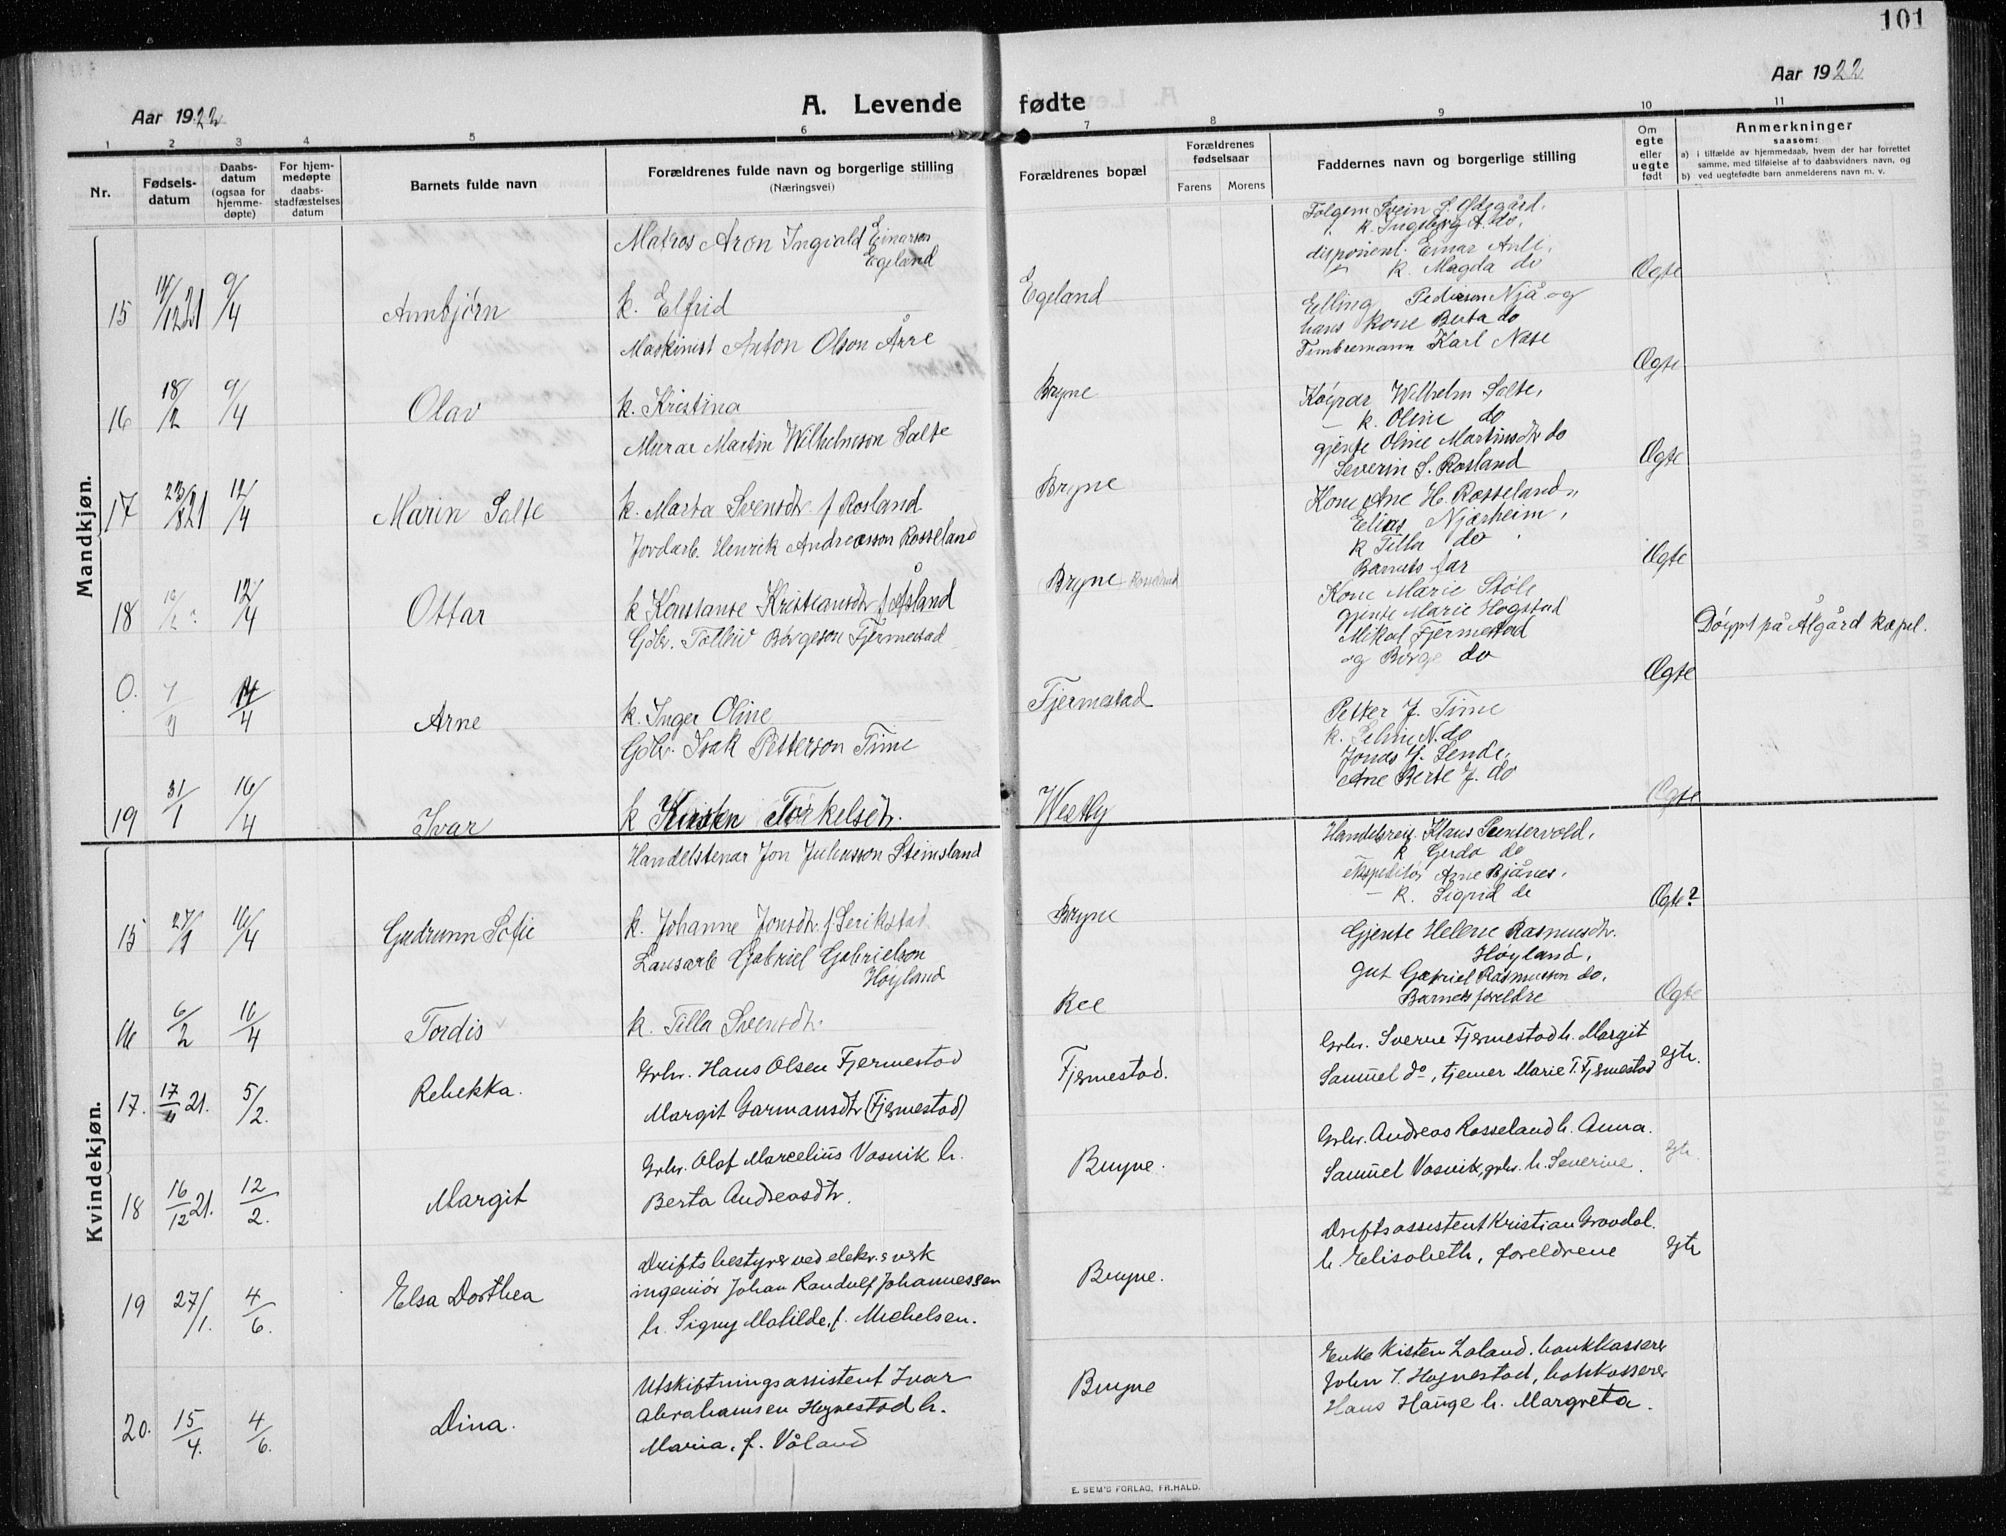 101
Aar 1922
A. Levende fødte
Aar 1922
1 2 3 4 5 6 7 8 9 10 11
Nr.
Fødsels-
datum
Daabs-
datum
(ogsaa for
hjemme-
døpte)
For hjem-
medøpte
daabs-
stadfæstelses
datum
Barnets fulde navn
Forældrenes fulde navn og borgerlige stilling
(Næringsvei)
Forældrenes bopæl
Forældrenes
fødselsaar
Farens Morens
Faddernes navn og borgerlige stilling
Om
egte
eller
uegte
født
Anmerkninger
saasom:
a) i tilfælde av hjemmedaab, hvem der har forrettet
samme, med tilføielse af to daabsvidners navn, og
b) ved uegtefødte barn anmelderens navn m. v.
Mandkjøn.
15 14/12 21 9/4 Arnbjørn
Matros Aron Ingvald Einarson
Egeland
k. Elfrid
Egeland
Svein S. Ødegård.
k. Ingeborg A. do.
disponent. Einar Anli,
k. Magda do
Øgte
16 18/2 9/4 Olav
Maskinist Anton Olson Åree
k. Kristina
Bryne
Elling Pederson Njå og
hans kone Berta do
Karl Nase
Øgte
17 23/8 21 12/4 Marin Salte
Murar Martin Wilhelmson Salte
k. Marta Svensdtr f Rosland
Bryne
Wilhelm Salte,
k. Oline do
gjente Oline Martinsdtr do
Severin S. Rosland
Øgte
18 12/4 Ottar
Jordarb. Henrik Andreasson Rosseland
k Konstanse Kristiansdtr f Åsland
Bryne Rosseland
Kone Ane H. Rosseland,
Elias Njærheim,
k Tilla do
Barnets far
Øgte
0. 14/4 Arne
Gbr. Tollev Børgeson Fjermestad
k. Inger Oline
Fjermestad
Kone Marie Støle
gjente Marie Hogstad
Mikal Fjermestad
og Børge do
Øgte
Døypt på Ålgård kapel.
19 31/1 16/4 Ivar
Gbr. Isak Petterson Time
k Kirsten Torkelsdtr.
Westly
Petter J. Time
k. Seline N. do
Jonas J. Sende,
Ane Berte J. do
Øgte
Kvindekjøn.
15 27/1 16/4 Gudrunn Sofie
Handelstenar Jon Julusson Steinsland
k. Johanne Jonsdtr f Serikstad
Bryne
Handelsreis. Klaus Suntervold,
k Gerda do
ekspeditør Arne Bjånes,
k. Sigrid do
Øgte?
16 6/2 16/4 Tordis
Lausarb Gabriel Gabrielson
Høyland
k. Tilla Svensdtr.
Ree
Gjente Helene Rasmusdtr.
Høyland,
gut Gabriel Rasmusson do,
Barnets foreldre
Øgte
17. 17/11 21. 5/2. Rebekka.
Grbr. Hans Olsen Fjermestad
Margit Garmansdtr (Fjermestad)
Fjermestad.
Grbr. Sverre Fjermestad h. Margit
Samuel do, tjener Marie T. Fjermestad
egte.
18 16/12 21. 12/2. Margit
Grbr. Olaf Marcelius Vasvik h.
Berta Andreasdtr.
Bryne.
Grbr. Andreas Rosseland h. Anna.
Samuel Vasvik, grbr. h. Severine.
egte.
19 27/1. 4/6. Elsa Dorthea
Driftsbestyrer ved elektr.s verk
ingeniør Johan Randulf Johannessen
h. Signy Matilde, f. Michelsen.
Bryne.
Driftsassistent Kristian Gravdal.
h. Elisabeth, foreldrene
egte
20. 15/4. 4/6. Dina.
Utskiftningsassistent Ivar
Abrahamsen Hognestad h.
Maria, f. Våland
Bryne
Enke Kisten Laland. bankkasserer
John I. Hognestad, bankkasserer
Hans Hauge h. Margreta.
E. SEM'S FORLAG, FR.HALD.